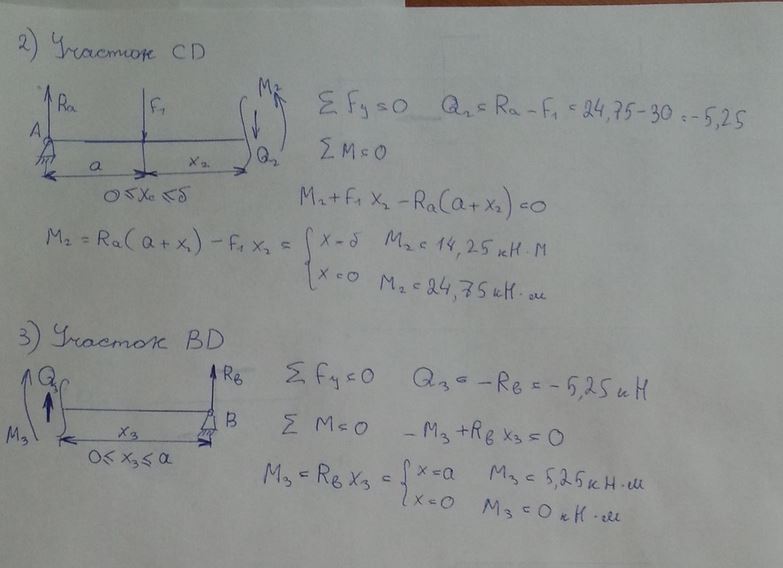 2) Участок CD
Ra F₁ M₂
A Q₂
a x₂
0 ≤ x₂ ≤ б
ΣFy = 0 Q₂ = Ra - F₁ = 24,75 - 30 = -5,25
ΣM = 0
M₂ + F₁ x₂ - Ra(a + x₂) = 0
M₂ = Ra(a + x₂) - F₁ x₂ = { x = б M₂ = 14,25 кН·м
x = 0 M₂ = 24,75 кН·м
3) Участок BD
Q₃ Rв
M₃ B
x₃
0 ≤ x₃ ≤ a
ΣFy = 0 Q₃ = -Rв = -5,25 кН
ΣM = 0 -M₃ + Rв x₃ = 0
M₃ = Rв x₃ = { x = a M₃ = 5,25 кН·м
x = 0 M₃ = 0 кН·м